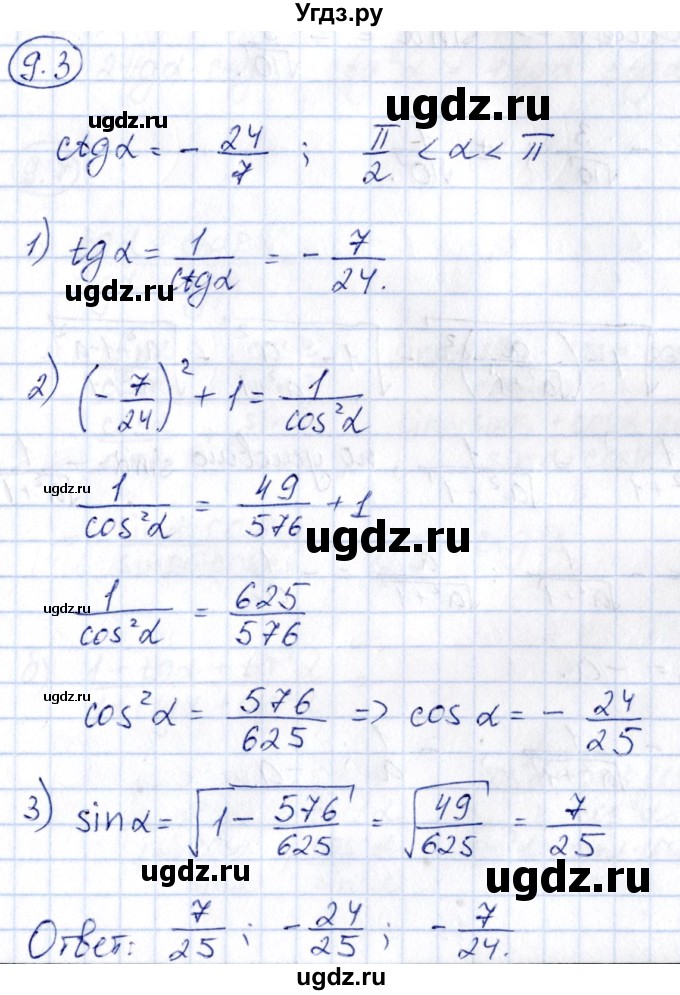 Угдз.ру
9.3
ugdz.ru
ugdz.ru
ctgα = - 24/7 ; π/2 < α < π
1) tgα = 1/ctgα = - 7/24.
ugdz.ru
ugdz.ru
2) (- 7/24)² + 1 = 1/cos²α
ugdz.ru
1/cos²α = 49/576 + 1
ugdz.ru
ugdz.ru
1/cos²α = 625/576
ugdz.ru
cos²α = 576/625 => cos α = - 24/25
3) sinα = √(1 - 576/625) = √(49/625) = 7/25
ugdz.ru
ugdz.ru
Ответ: 7/25 ; - 24/25 ; - 7/24.
ugdz.ru